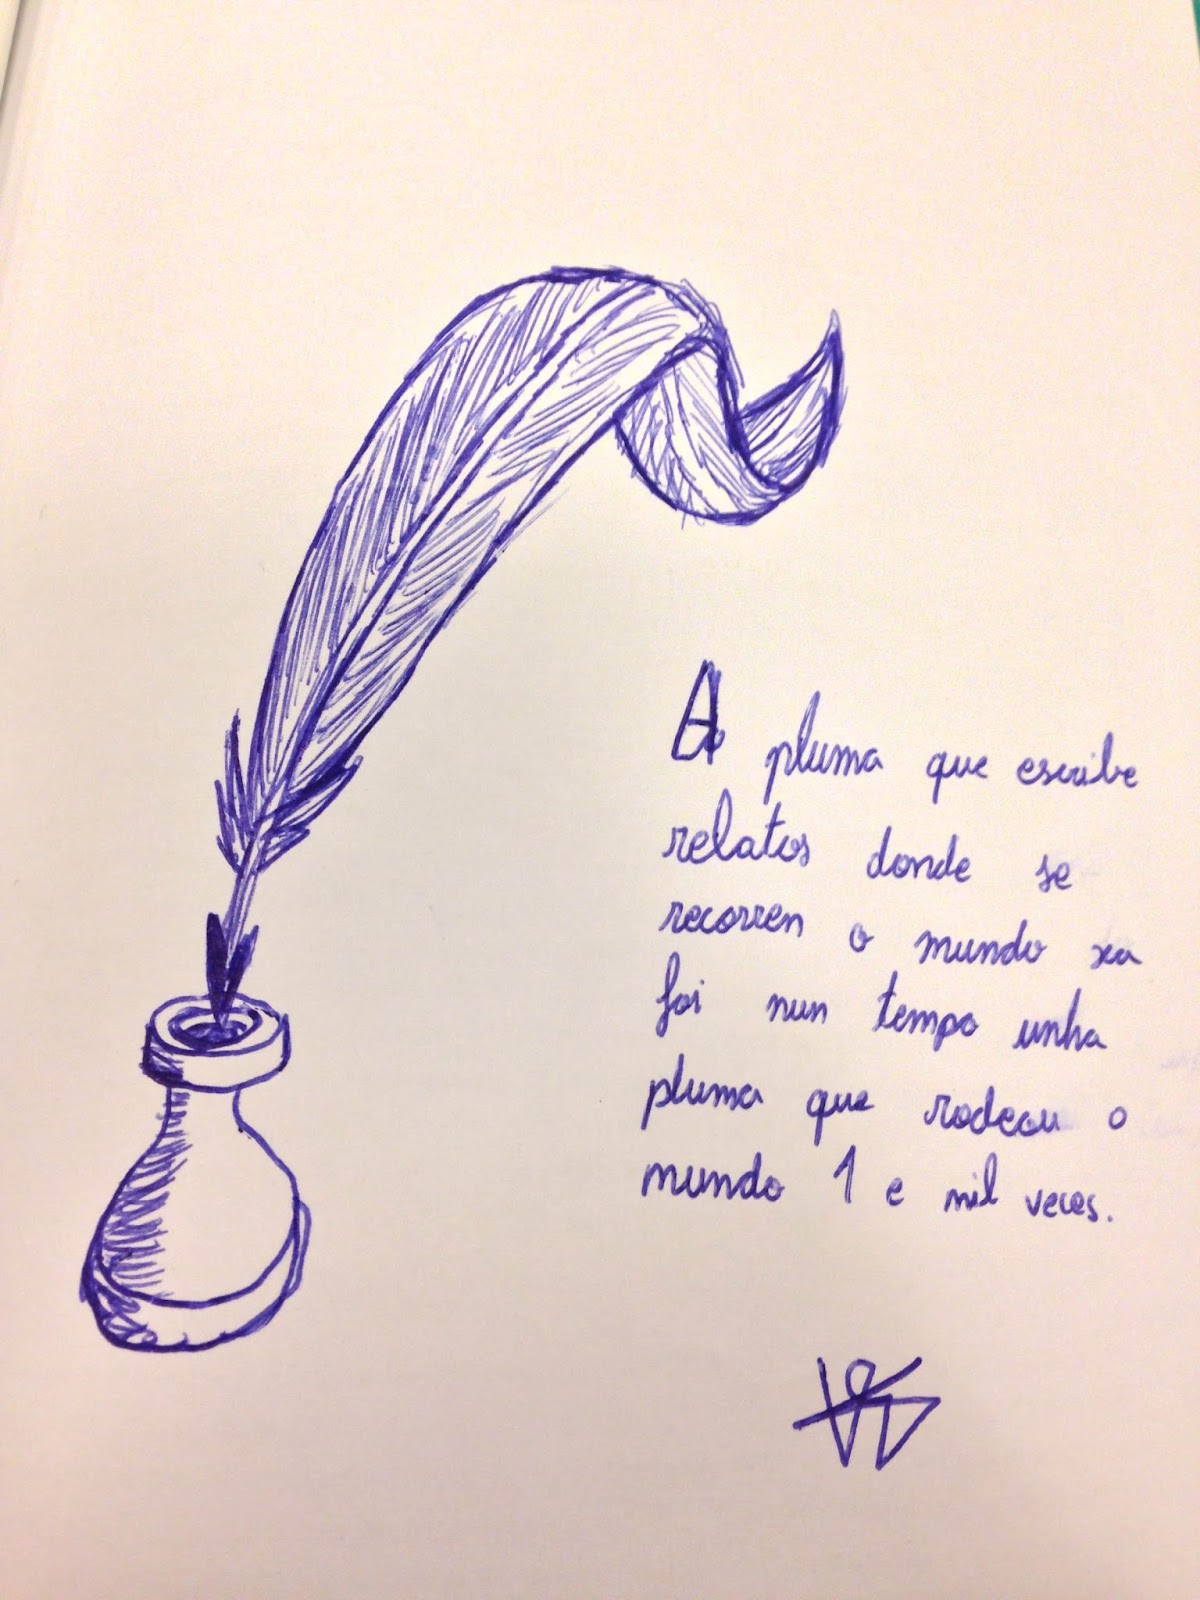 A pluma que escribe
relatos donde se
recorren o mundo xa
foi nun tempo unha
pluma que rodeou o
mundo 1 e mil veces.